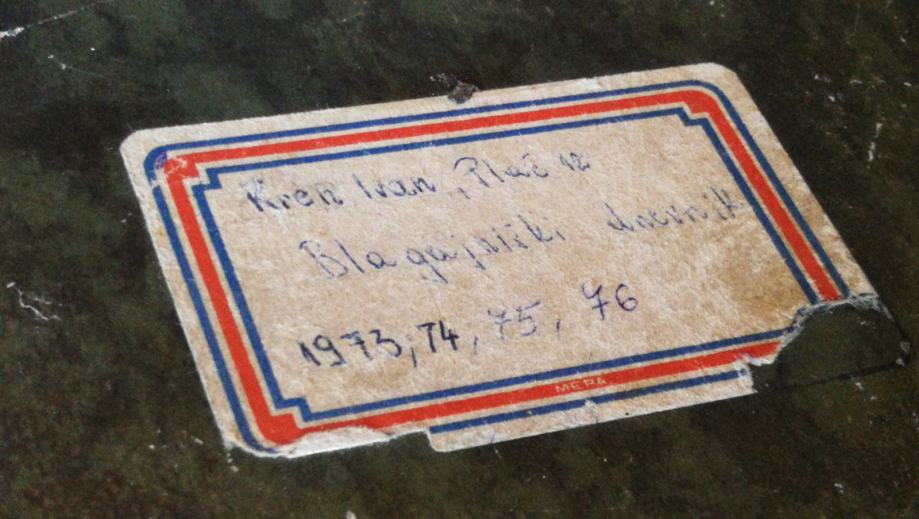 Kren Ivan, Plač 12
Blagajniški dnevnik
1973, 74, 75, 76
MEPA